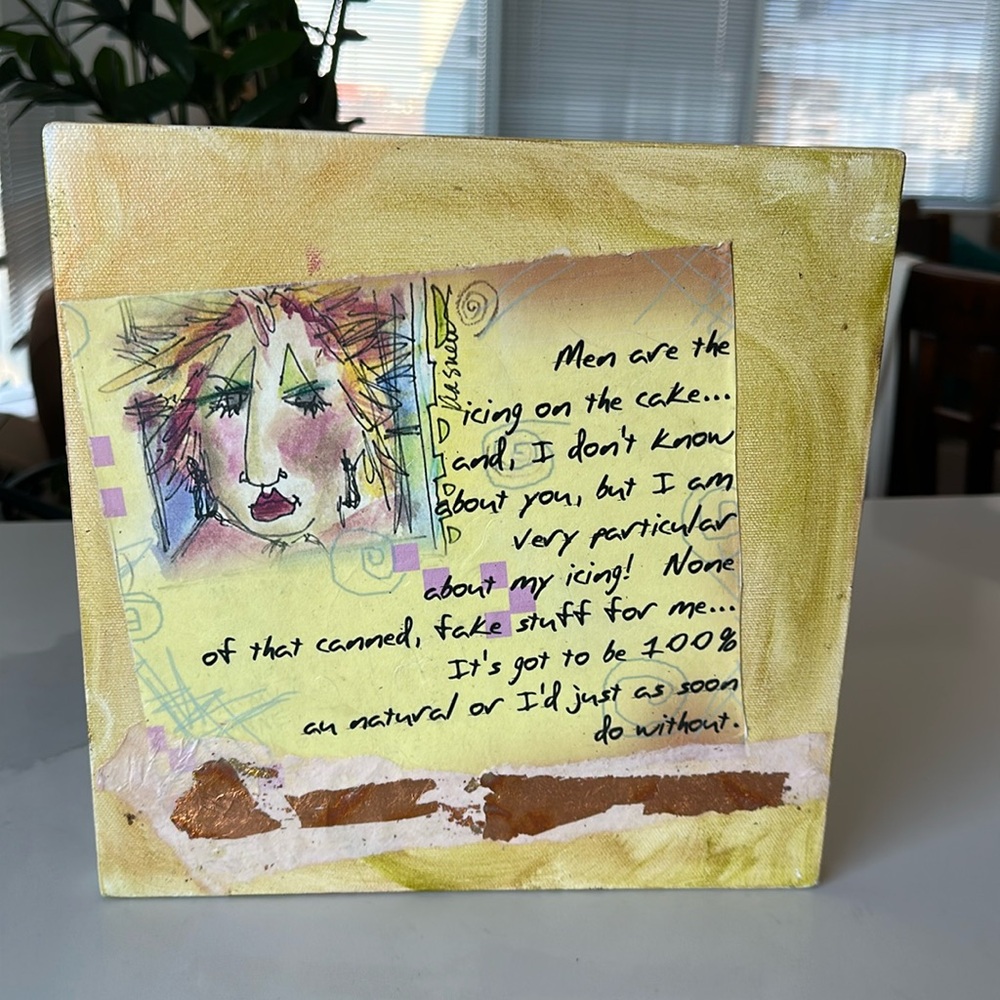 Men are the
icing on the cake...
and, I don't know
about you, but I am
very particular
about my icing! None
of that canned, fake stuff for me...
It's got to be 100%
au natural or I'd just as soon
do without.